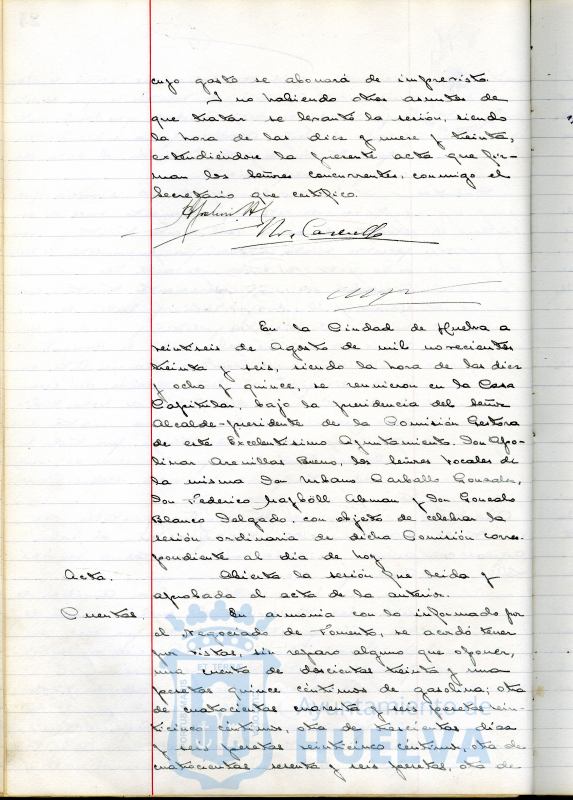 cuyo gasto se abonará de imprevisto.
Y no habiendo otros asuntos de
que tratar se levantó la sesión, siendo
la hora de las diez y nueve y treinta,
extendiéndose la presente acta que fir-
man los Señores concurrentes, conmigo el
Secretario que certifico.
En la Ciudad de Huelva a
veintiseis de Agosto de mil novecientos
treinta y seis, siendo la hora de las diez
y ocho y quince, se reunieron en la Casa
Capitular, bajo la presidencia del señor
Alcalde-presidente de la Comisión Gestora
de este Excelentísimo Ayuntamiento Don Afro-
disio Arenillas Bueno, los señores vocales de
la misma Don Urbano Carballo Gonzalez,
Don Federico y Don Gonzalo
Blanco Delgado, con objeto de celebrar la
sesión ordinaria de dicha Comisión corres-
pondiente al día de hoy.
Acta. Abierta la sesión fue leida y
aprobada el acta de la anterior.
Cuentas. En armonia con lo informado por
el Negociado de Fomento, se acordó tener
por vistas, sin reparo alguno que oponer,
una cuenta de doscientas treinta y una
pesetas quince céntimos de gasolina; otra
de cuatrocientas cuarenta y seis pesetas vein-
ticinco céntimos, otra de trescientas diez
y seis pesetas veinticinco céntimos, otra de
cuatrocientas sesenta y seis pesetas, otra de
Ayuntamiento de
HUELVA